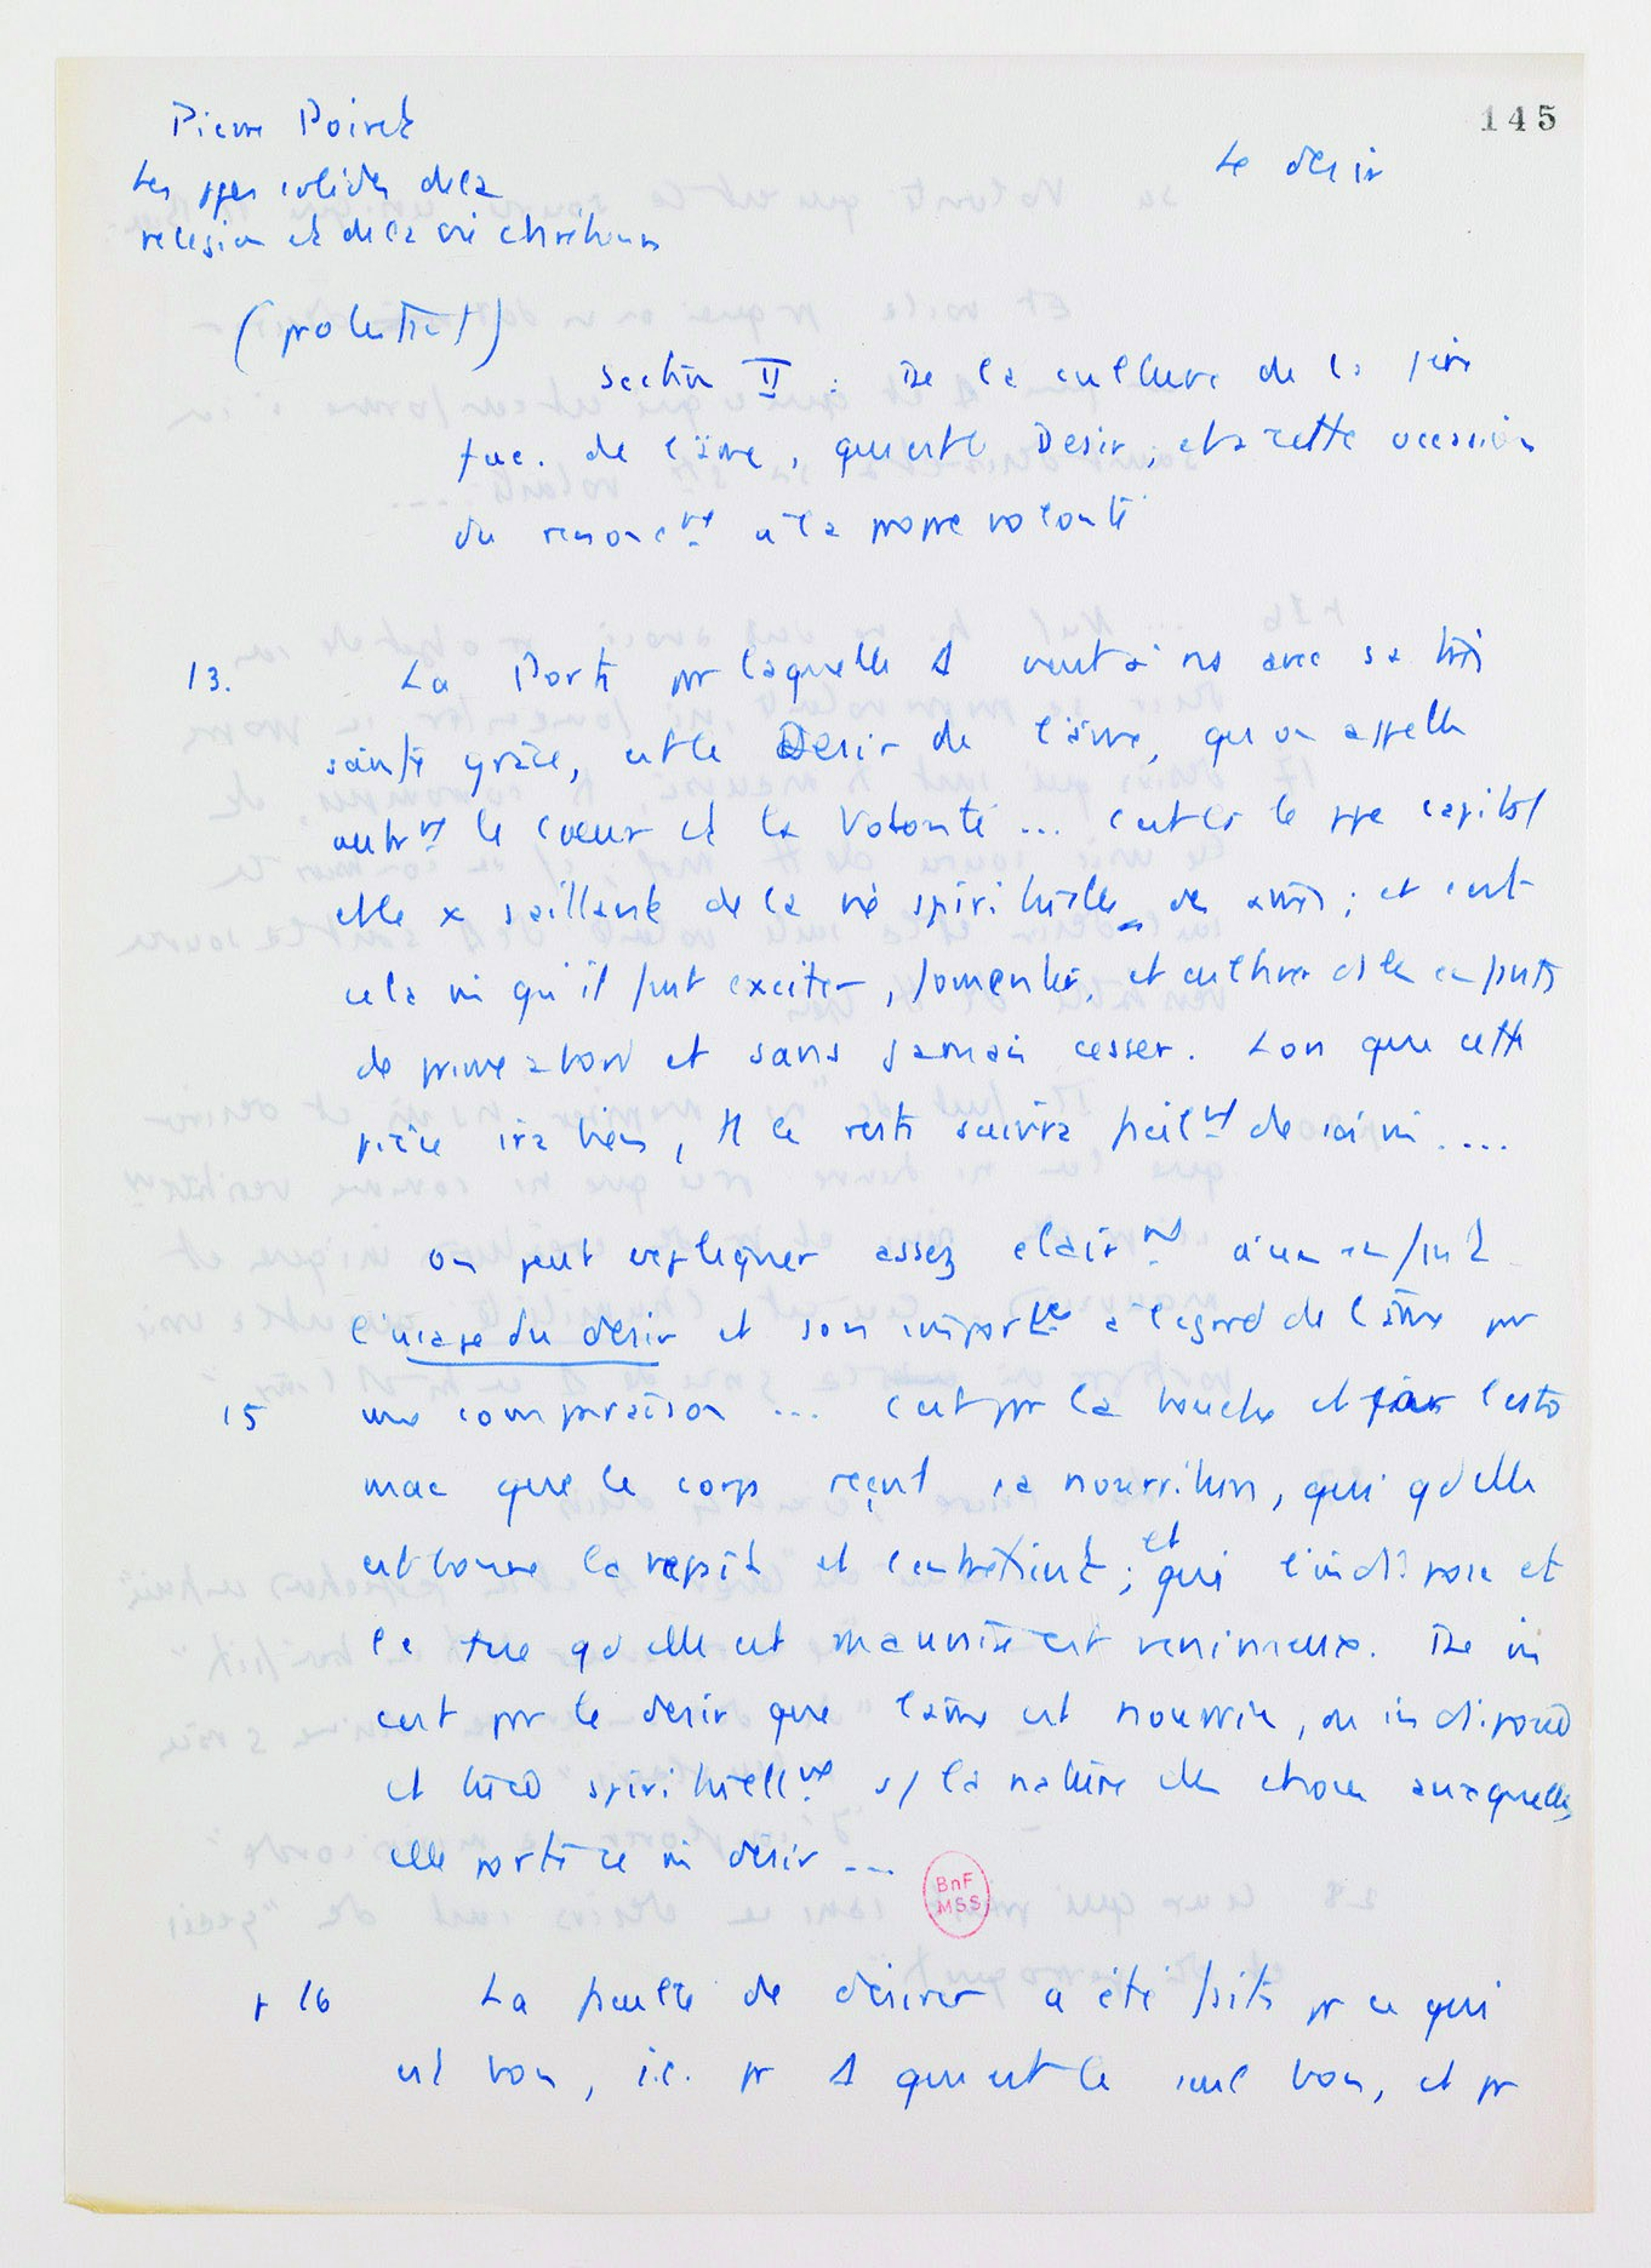 145
Pierre Poiret
Le désir
Les ppes solides de la
religion et de la vie chrétienne
(protestant)
Section II : De la culture de la
fac. de l'âme, qui est le Desir, et à cette occasion
du renoncnt à la propre volonté
13. La Porte pr laquelle Δ vient à ns avec sa très
sainte grâce, est le Desir de l'âme, qu'on appelle
autrnt le coeur et la Volonté ... c'est là le ppe capital
et le + saillant de la vie spirituelle des âmes ; et c'est
cela mê qu'il faut exciter, fomenter, et cultiver ds les enfants
de prime abord et sans jamais cesser. Lors que cette
pièce ira bien, tt le reste suivra facilnt de soi mê ....
On peut expliquer assez clairnt à un enfant
l'usage du désir et son importce à l'égard de l'âme pr
15 une comparaison ... c'est pr la bouche et par l'esto
mac que le corps reçoit sa nourriture, qui qd elle
est bonne le repait et l'entretient ; et qui l'indispose et
le tue qd elle est mauvaise et venimeuse. De mê
c'est pr le désir que l'âme est nourrie, ou indisposée
et tuée spirituellnt s/ la nature des choses auxquelles
elle porte ce mê désir ...
BnF
MSS
p 16 La faculté de désirer a été faite pr ce qui
est bon, i.e. pr Δ qui est le seul bon, et pr